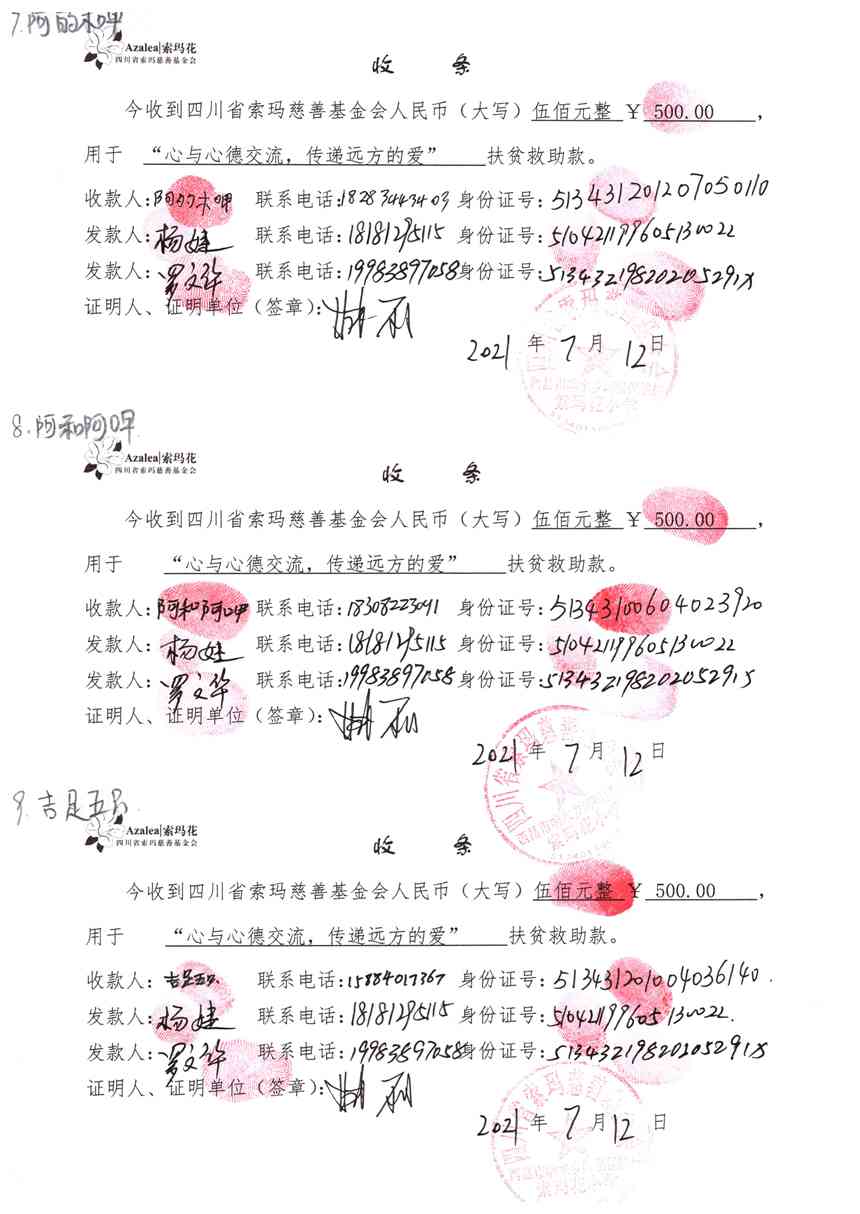 7.阿的木呷
Azalea|索玛花
四川省索玛慈善基金会
收 条
今收到四川省索玛慈善基金会人民币（大写）伍佰元整 ￥ 500.00 ，
用于 “心与心德交流，传递远方的爱” 扶贫救助款。
收款人：阿的木呷 联系电话：18283443403 身份证号：513431201207050110
发款人：杨婕 联系电话：18181295115 身份证号：510421199605130022
发款人：罗文华 联系电话：19983897058 身份证号：
证明人、证明单位（签章）：
2021 年 7 月 12 日
8.阿和阿呷
Azalea|索玛花
四川省索玛慈善基金会
收 条
今收到四川省索玛慈善基金会人民币（大写）伍佰元整 ￥ 500.00 ，
用于 “心与心德交流，传递远方的爱” 扶贫救助款。
收款人：阿和阿呷 联系电话：18308223041 身份证号：51343100604023920
发款人：杨婕 联系电话：18181295115 身份证号：510421199605130022
发款人：罗文华 联系电话：19983897058 身份证号：
证明人、证明单位（签章）：
2021 年 7 月 12 日
9.吉足五呷
Azalea|索玛花
四川省索玛慈善基金会
收 条
今收到四川省索玛慈善基金会人民币（大写）伍佰元整 ￥ 500.00 ，
用于 “心与心德交流，传递远方的爱” 扶贫救助款。
收款人： 联系电话：15884017367 身份证号：513431201004036140.
发款人：杨婕 联系电话：18181295115 身份证号：510421199605130022.
发款人：罗文华 联系电话：19983897058 身份证号：
证明人、证明单位（签章）：
2021 年 7 月 12 日